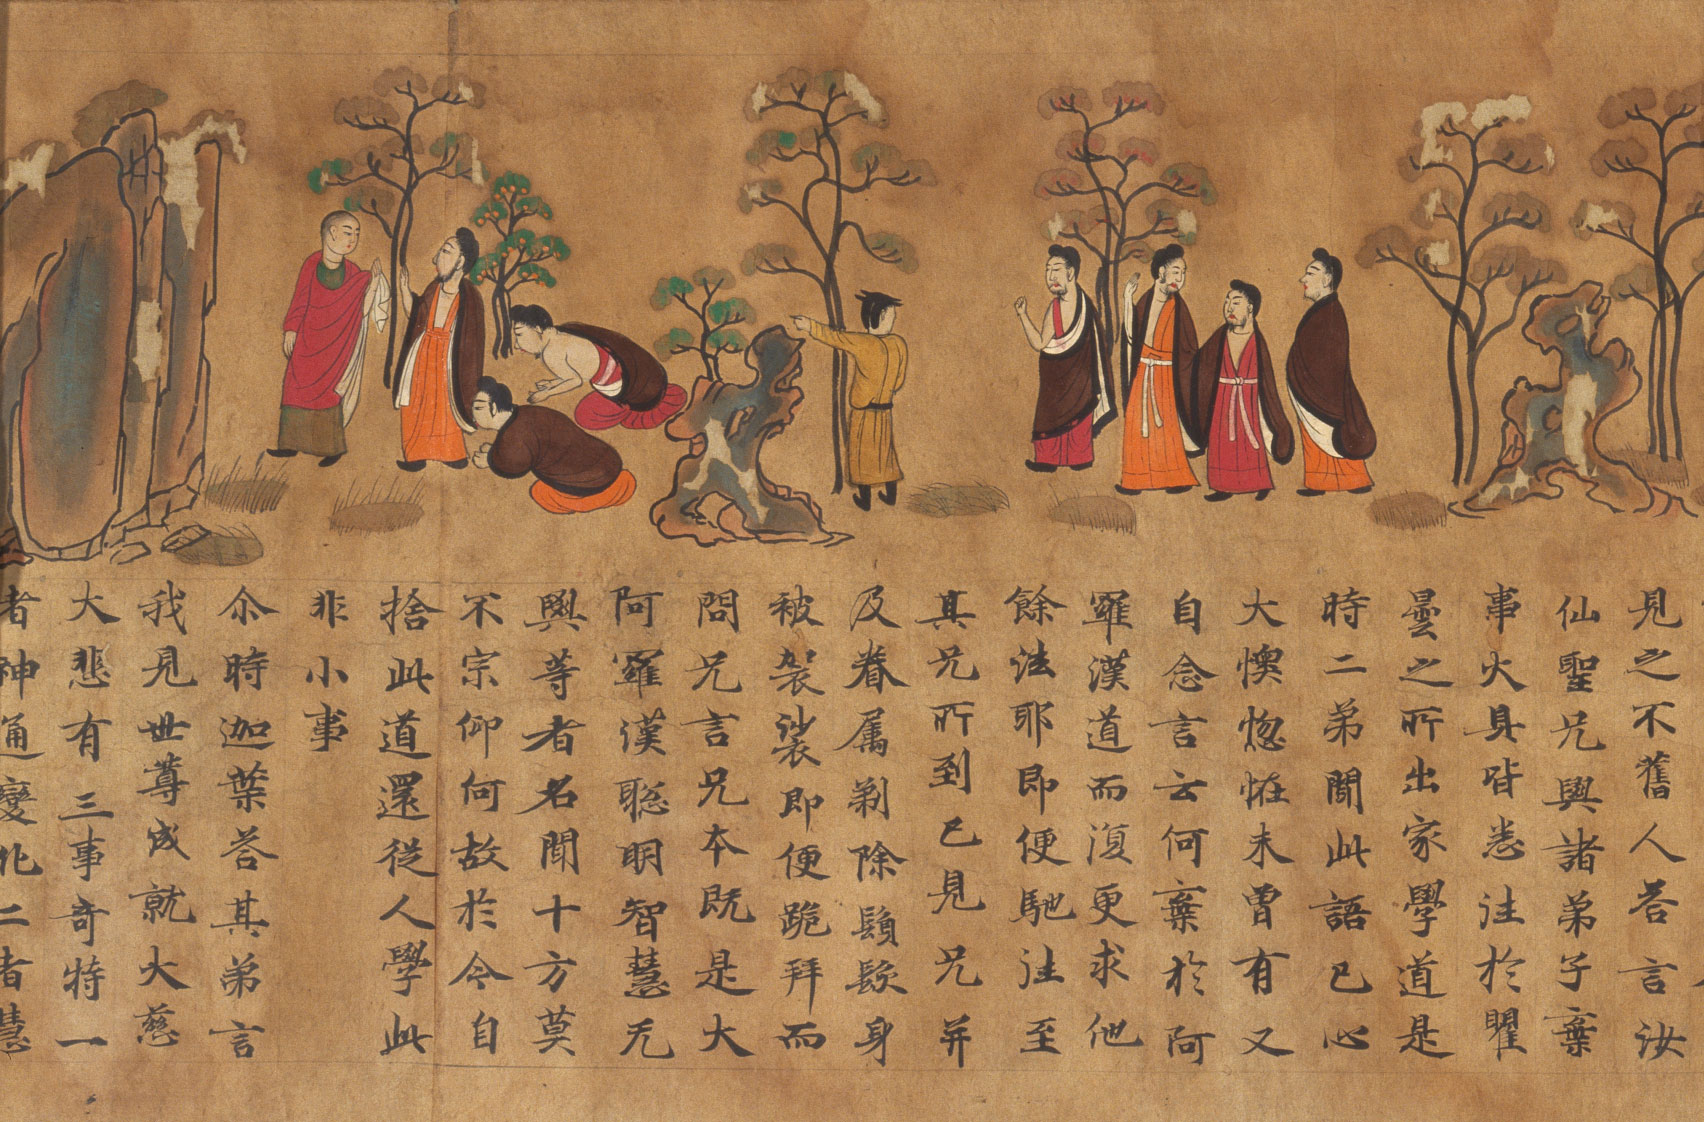 見之不舊人答言汝
仙聖兄與諸弟子棄
事火具皆悉往於瞿
曇之所出家學道是
時二弟聞此語已心
大懊惚恠未曽有又
自念言云何棄於阿
羅漢道而復更求他
餘法耶即便馳往至
其兄所到已見兄并
及眷属剃除鬚髮身
被袈裟即便跪拜而
問兄言兄本既是大
阿羅漢聡明智慧无
與等者名聞十方莫
不宗仰何故於今自
捨此道還従人學此
非小事
尒時迦葉答其弟言
我見世尊成就大慈
大悲有三事奇特一
者神通變化二者慧